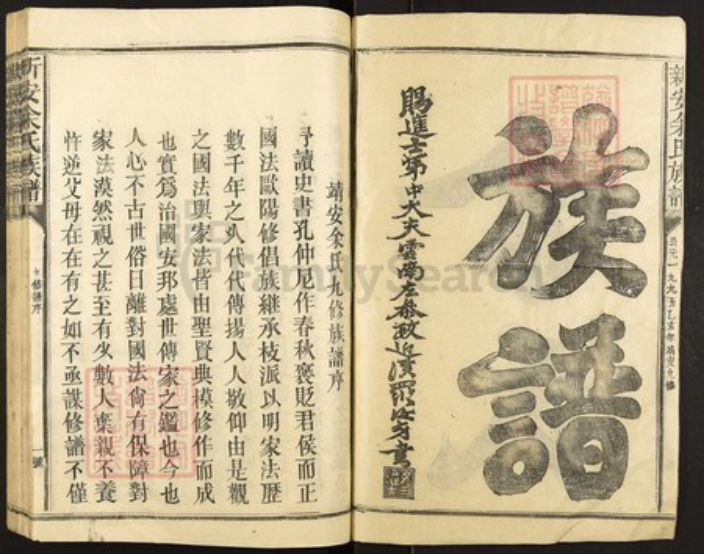 族譜
賜進士第中大夫雲南左參政近溪羅汝芳書
新安余氏族譜
公元一九九五乙亥年靖安九修
靖安余氏九修族譜序
予讀史書孔仲尼作春秋褒貶君侯而正
國法歐陽修倡族継承枝派以明家法歷
數千年之久代代傳揚人人敬仰由是觀
之國法與家法皆由聖賢典模修作而成
也實爲治國安邦處世傳家之鑑也今也
人心不古世俗日離對國法尚有保障對
家法漠然視之甚至有少數人棄親不養
忤逆父母在在有之如不亟謀修譜不僅
新安余氏族譜
九修譜序
一號
FamilySearch